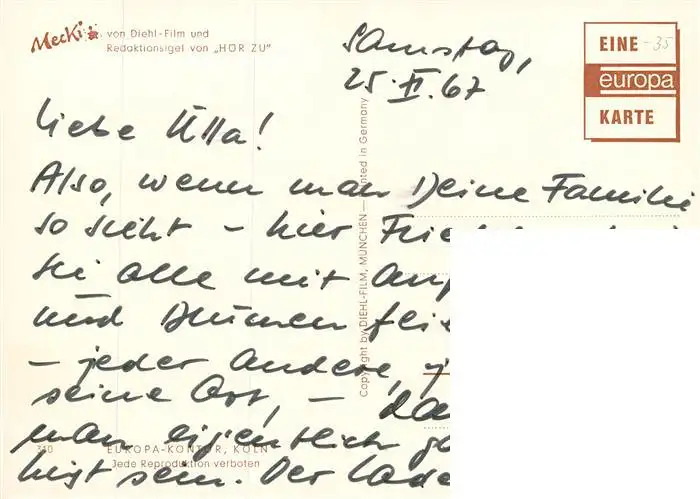 Mecki von Diehl-Film und
Redaktionsigel von „HÖR ZU"
EINE -35
europa
KARTE
Samstag,
25. II. 67
Liebe Ulla!
Also, wenn man Deine Familie
so sieht - hier
sie alle mit
und Blumen
- jeder andere,
seine Art, -
man eigentlich
sein. Der
Copyright by DIEHL-FILM, MÜNCHEN — Printed in Germany
310 EUROPA-KONTOR, KÖLN
Jede Reproduktion verboten